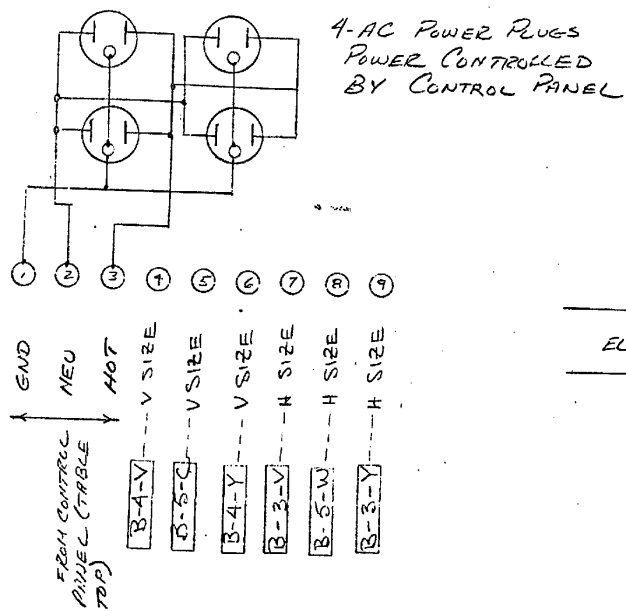 4-AC POWER PLUGS
POWER CONTROLLED
BY CONTROL PANEL
1 2 3 4 5 6 7 8 9
GND
NEU
HOT
V SIZE
V SIZE
V SIZE
H SIZE
H SIZE
H SIZE
FROM CONTROL
PANEL (TABLE
TOP)
B-4-V
B-5-C
B-4-Y
B-3-V
B-5-W
B-3-Y
EL